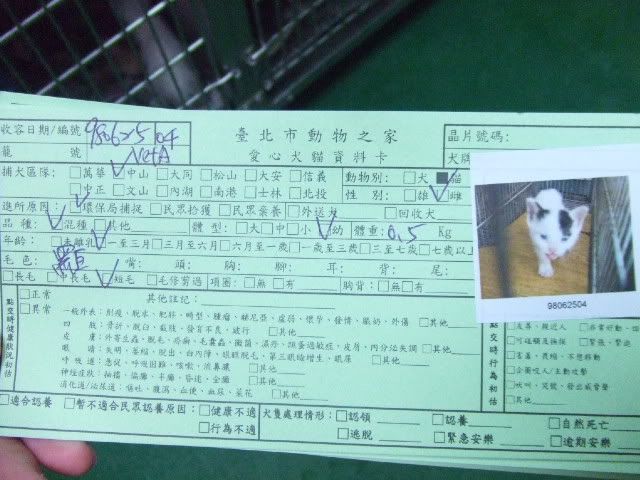 收容日期/編號 980625 04
臺北市動物之家
晶片號碼:
籠 號
愛心犬貓資料卡
犬牌
捕犬區隊: □萬華 □中山 □大同 □松山 □大安 □信義 動物別: □犬 ■貓
□中正 □文山 □內湖 □南港 □士林 □北投 性 別: □雄 □雌
進所原因: □環保局捕捉 □民眾拾獲 □民眾棄養 □外送 □回收犬
品 種: □混種 □其他 體 型: □大 □中 □小 □幼 體重: 0.5 Kg
年齡: □未離乳 □一至三月 □三月至六月 □六月至一歲 □一歲至三歲 □三至七歲 □七歲以上
毛 色: 黑白 嘴: 頭: 胸: 腳: 耳: 背: 尾:
□長毛 □中長毛 □短毛 □毛修剪過 項圈: □無 □有 胸背: □無 □有
點交時健康狀況初估
□正常
□異常
其他註記:
一般外表: 削瘦、脫水、肥胖、時型、腫瘤、虛弱、懷孕、發情、脹奶、外傷 □其他
四 肢: 骨折、脫臼、截肢、發育不良、跛行 □其他
皮 膚: 外寄生蟲、脫毛、疥癬、毛囊蟲、黴菌、濕疹、皮屑、內分泌失調 □其他
眼 睛: 失明、萎縮、脫出、白內障、眼瞼脫毛、第三眼瞼增生、眼屎 □其他
呼吸道: 急促、呼吸困難、咳嗽、流鼻膿 □其他
神經症狀: 抽搐、偏癱、半癱、昏迷、全癱 □其他
消化道/泌尿道: 嘔吐、腹瀉、血便、血尿、尿花 □其他
98062504
點交時行為初估
□友善、親近人 □非常好動
□可碰觸並撫摸 □緊張、緊迫
□害羞、畏縮、不想移動
□企圖咬人/主動攻擊
□吠叫、哭號、發出威脅聲
□其他
□適合認養 □暫不適合民眾認養原因: □健康不適
□行為不適
犬隻處理情形: □認領 □認養 □自然死亡
□逃脫 □緊急安樂 □逾期安樂